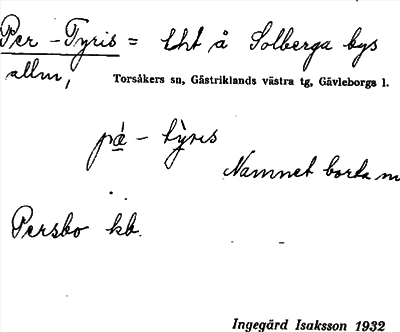 Per-Tyris = tht å Solberga bys
allm,
Torsåkers sn, Gästriklands västra tg, Gävleborgs l.
pǽ - tỳris
Namnet borta m
Persbo kb.
Ingegärd Isaksson 1932